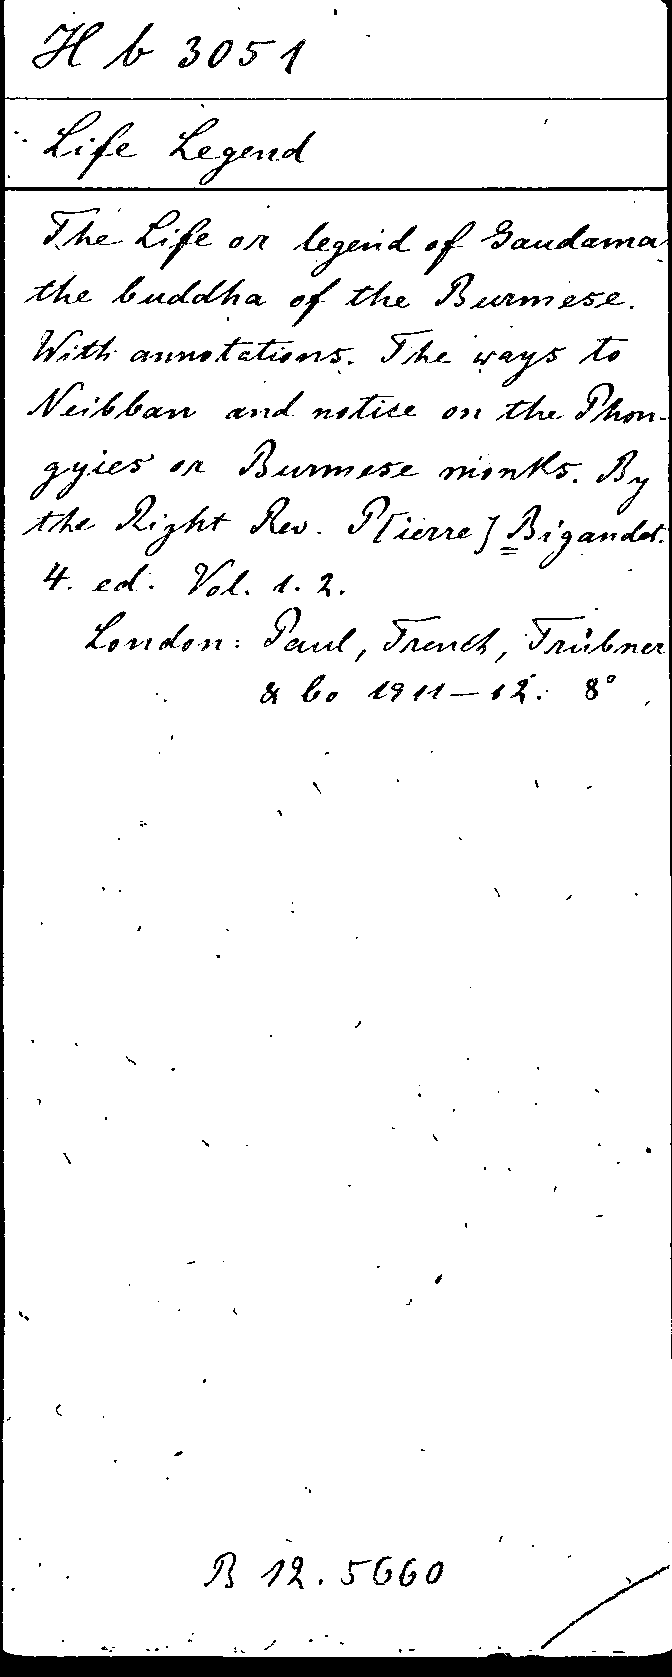 H b 3051
Life Legend
The Life or legend of Gaudama
the buddha of the Burmese.
With annotations. The ways to
Neibban and notise on the Phon-
gyies or Burmese monks. By
the Right Rev. P[ierre] Bigandet.
4. ed. Vol. 1. 2.
London: Paul, Trench, Trübner
& Co 1911–12. 8°
B 12. 5660